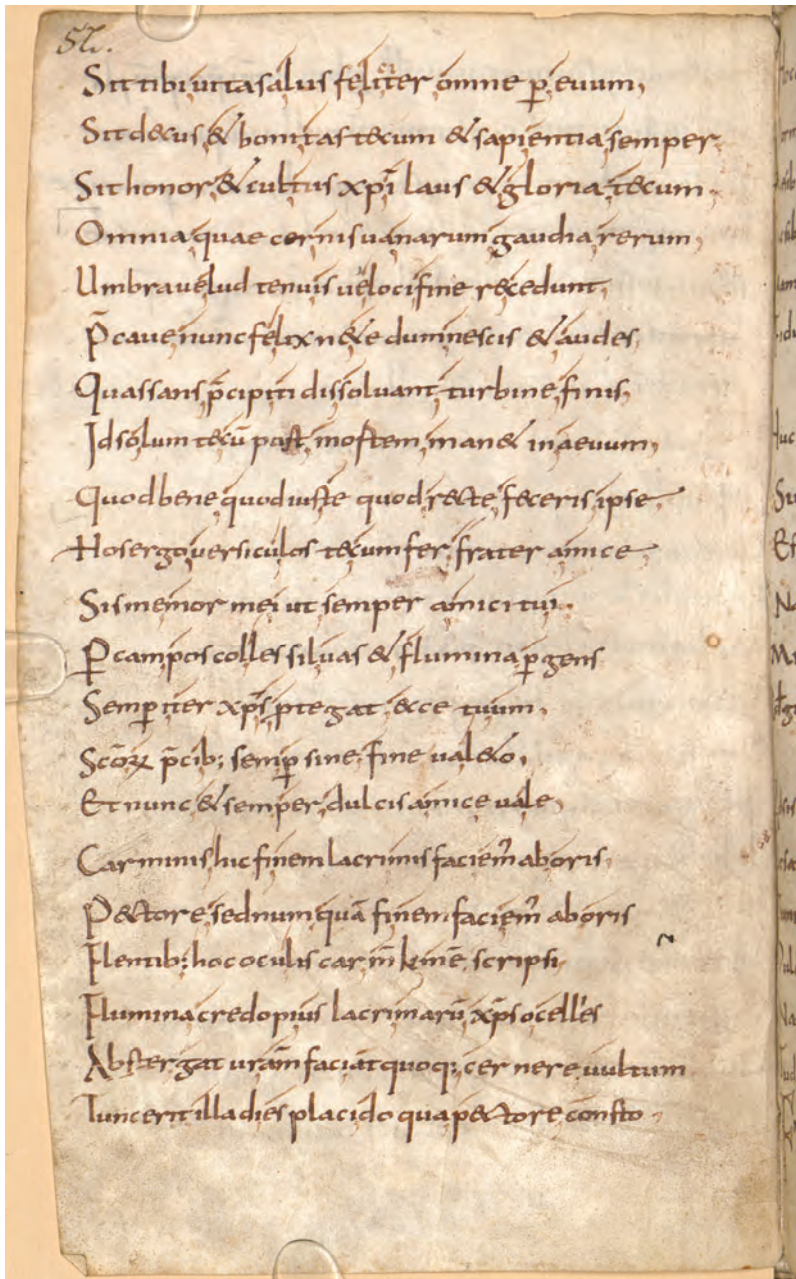 52.
Sit tibi uita salus feliciter omne p̱ euum,
Sit decus & bonitas tecum & sapientia semper
Sit honor & cultus xp̄i laus & gloria tecum
Omnia quae cernis uanarum gaudia rerum,
Umbra uelud tenuis ueloci fine recedunt,
P̄caue nunc felix n&e dum nescis & audes
Quassans p̄cipiti dissoluant turbine finis,
Id solum tecū post mortem man& in aeuum,
Quod bene quod iuste quod recte feceris ipse
Hos ergo uersiculos tecum fer frater amice
Sis memor mei ut semper amici tui.
P̱ campos colles siluas & flumina p̱gens
Semp̱ iter xp̄s ptegat ecce tuum,
Sc̄oꝝ p̄cib; semp̱ sine fine ual&o,
Et nunc & semper dulcis amice uale,
Carminis hic finem lacrimis faciem̄ aboris
Pectore sed numquā finem faciem̄ aboris
Flentib; hoc oculis carm̄ scripsi
Flumina credo pius lacrimarū xp̄s ocelles
Abstergat ur̄am faciat quoq; cernere uultum
Tunc erit illa dies placido qua pectore consto